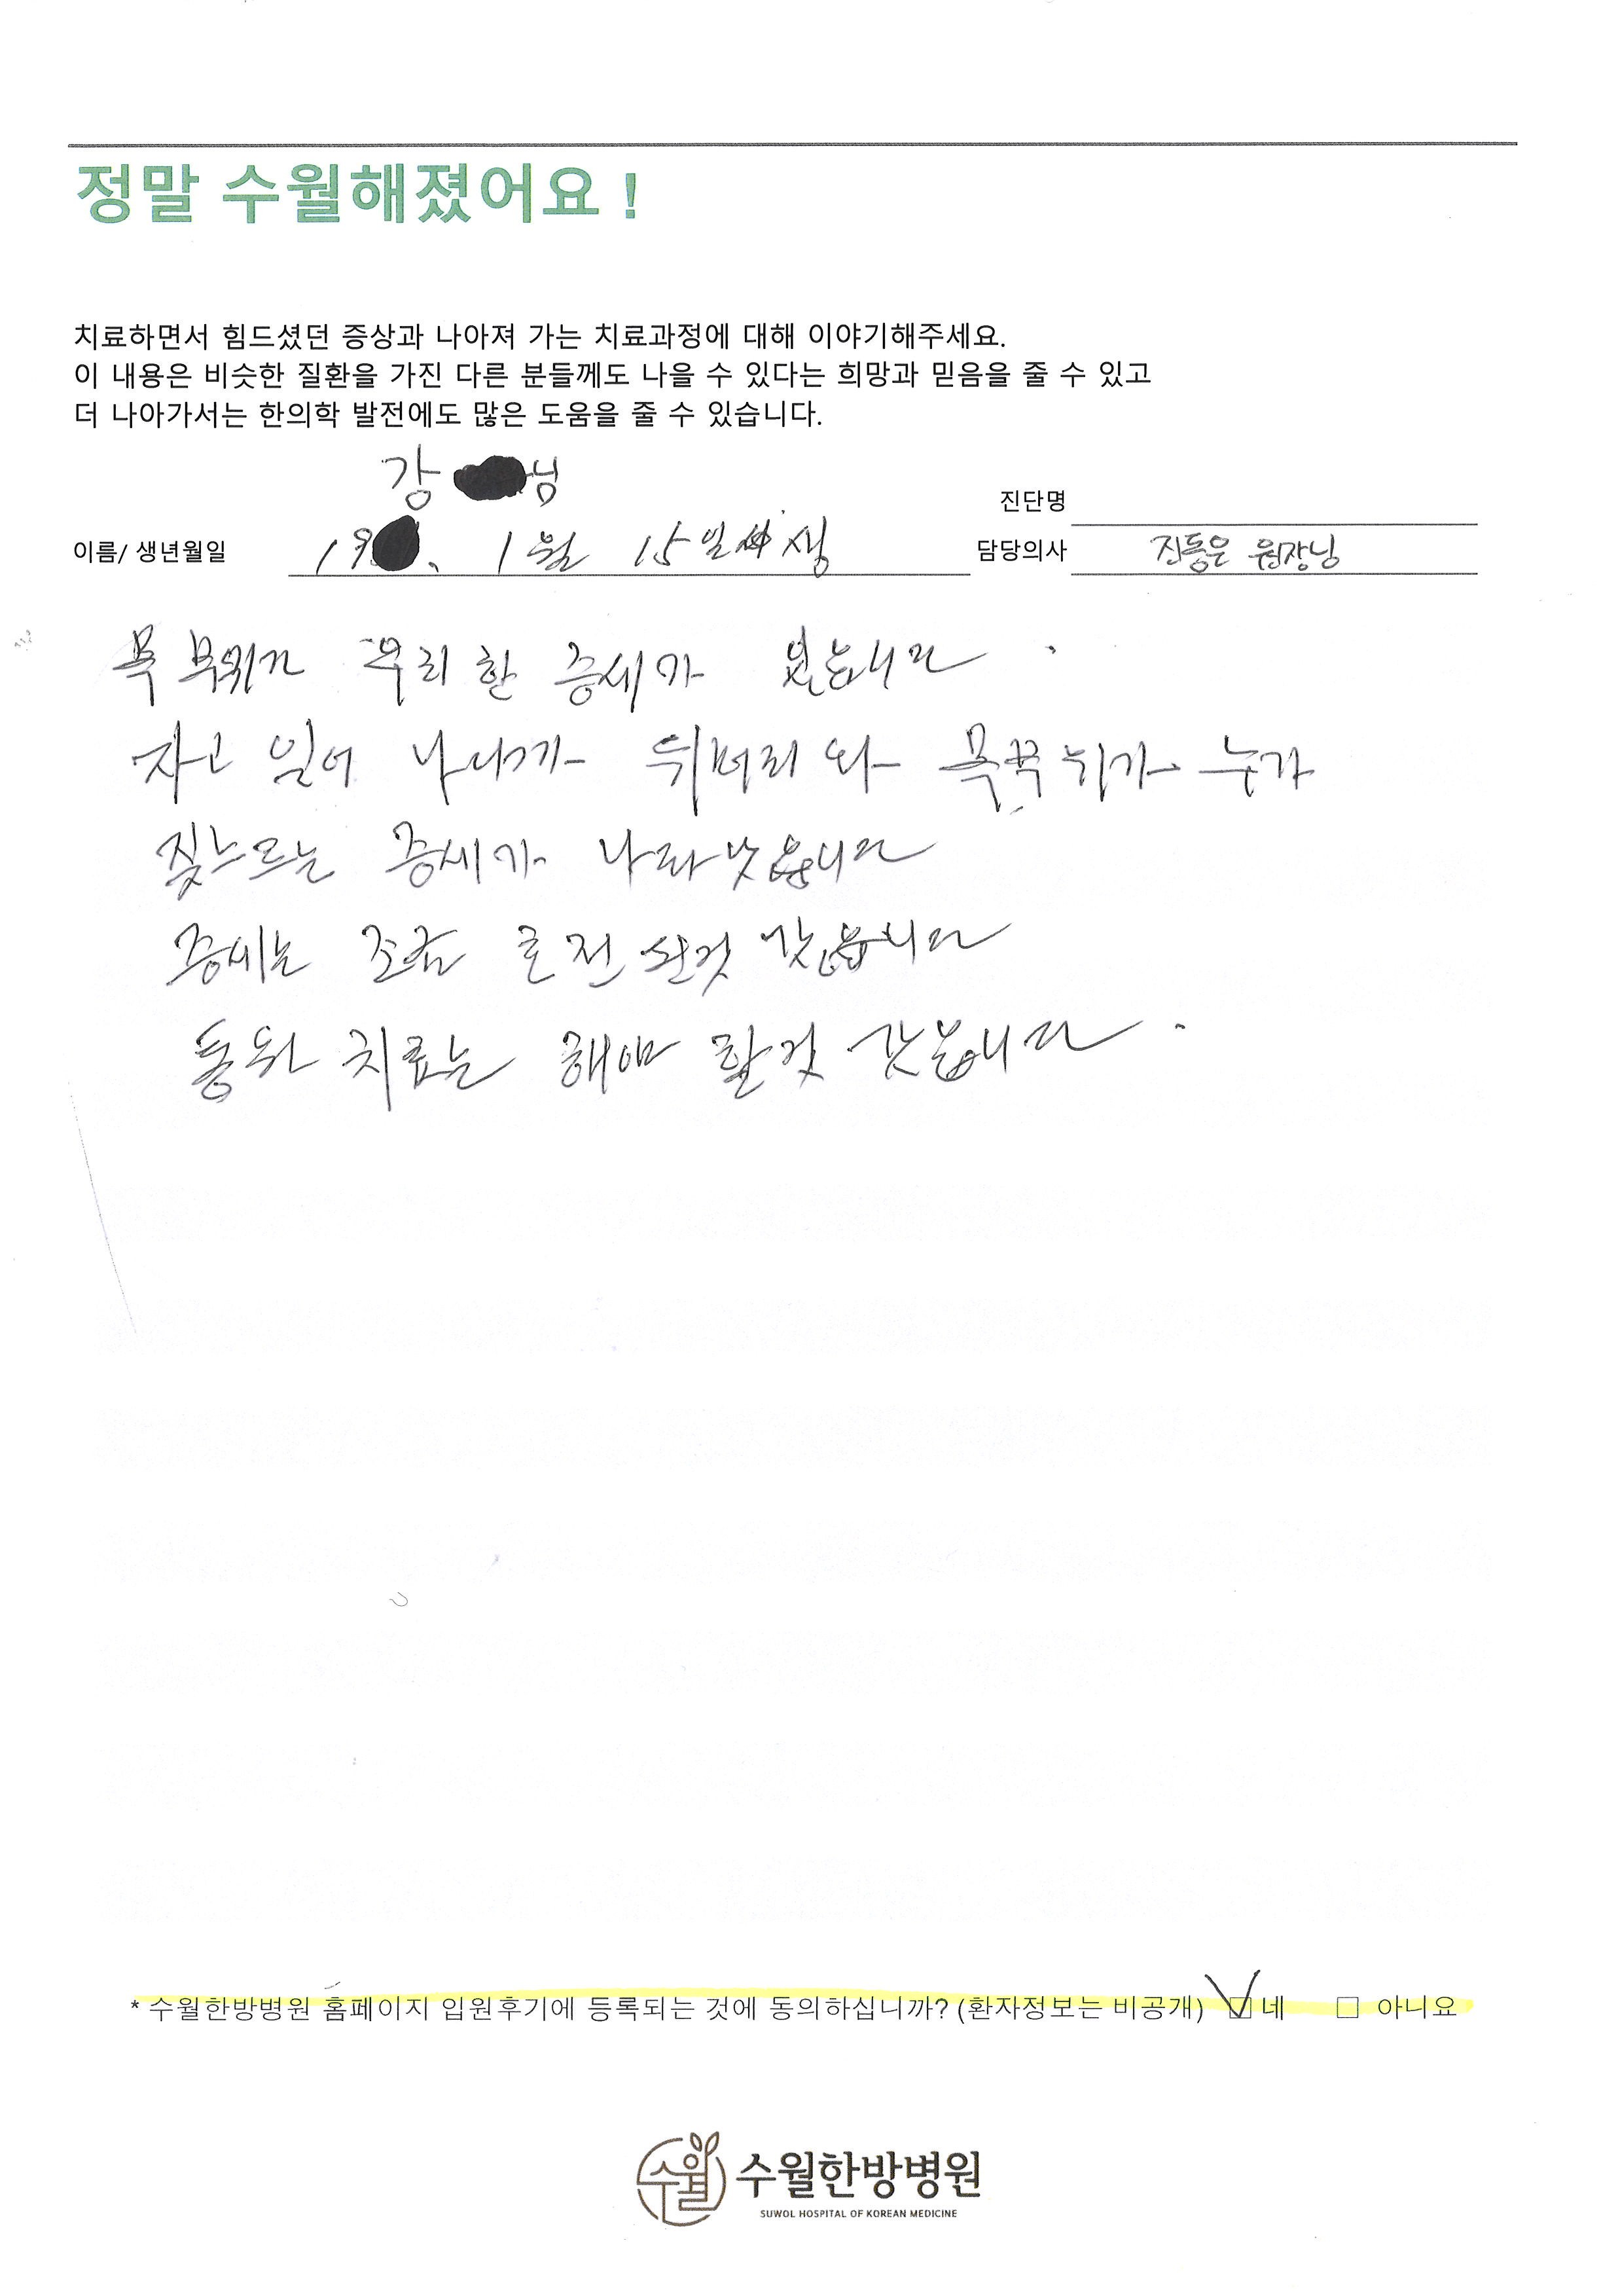 정말 수월해졌어요 !
치료하면서 힘드셨던 증상과 나아져 가는 치료과정에 대해 이야기해주세요.
이 내용은 비슷한 질환을 가진 다른 분들께도 나을 수 있다는 희망과 믿음을 줄 수 있고
더 나아가서는 한의학 발전에도 많은 도움을 줄 수 있습니다.
강 님
진단명
이름/ 생년월일 19 . 1월 15일 생 담당의사 진동은 원장님
목 부위가 우리한 증세가 있습니다 .
자고 일어 나니까 뒤머리 와 목꾹 뒤가 누가
짖느르는 증세가 나타낫습니다
증세는 조금 호전 된것 갓습니다
통원 치료는 해야 할것 갓습니다 .
* 수월한방병원 홈페이지 입원후기에 등록되는 것에 동의하십니까? (환자정보는 비공개) ☑ 네 □ 아니요
수월 수월한방병원
SUWOL HOSPITAL OF KOREAN MEDICINE